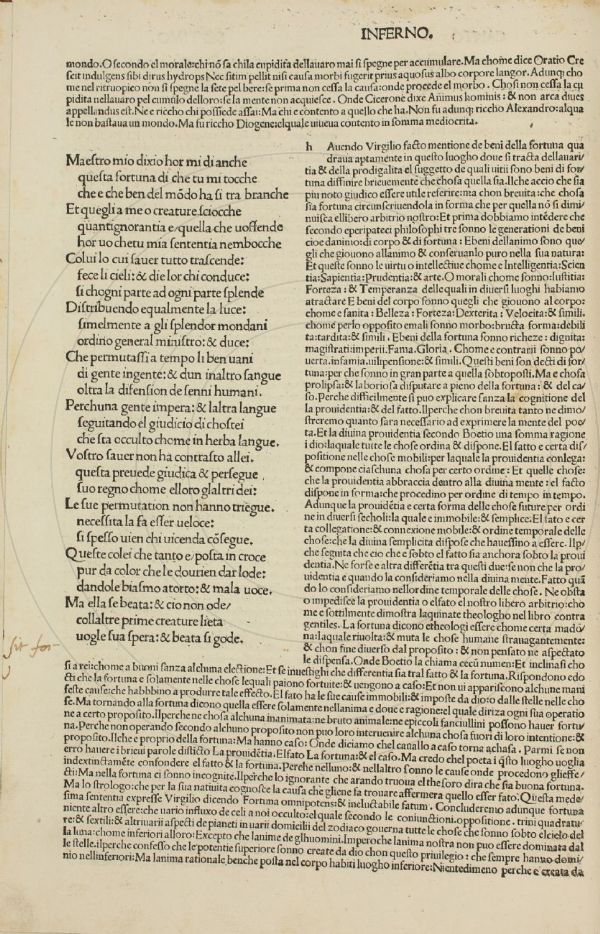 INFERNO.
mondo. O secondo el morale: chi nõ sa chi la cupidita dellauaro mai si spegne per accumulare. Ma chome dice Oratio Cre
scit indulgens sibi dirus hydrops Nec sitim pellit nisi causa morbi fugerit prius aquosus albo corpore langor. Adunqi cho
me nel ritruopico non si spegne la sete pel bere: se prima non cessa la causa: onde procede el morbo. Chosi non cessa la cu
pidita nellauaro pel cumulo delloro: se la mente non acquiesce. Onde Cicerone dixe Animus hominis: & non arca diues
appellandus est. Ne e riccho chi possiede assai: Ma chi e contento a quello che ha. Non fu adunqi riccho Alexandro: alqua
le non bastaua un mondo. Ma fu riccho Diogene: elquale uiueua contento in somma mediocrita.
Maestro mio dixio hor mi di anche
questa fortuna di che tu mi tocche
che e che ben del mõdo ha si tra branche
Et quegli a me o creature sciocche
quantignorantia e/quella che uoffende
hor uo che tu mia sententia nembocche
Colui lo cui sauer tutto trascende:
fece li cieli: & die lor chi conduce:
si chogni parte ad ogni parte splende
Distribuendo equalmente la luce:
simelmente a gli splendor mondani
ordino general ministro: & duce:
Che permutassi a tempo li ben uani
di gente ingente: & dun inaltro sangue
oltra la difension de senni humani.
Perchuna gente impera: & laltra langue
seguitando el giudicio di chostei
che sta occulto chome in herba langue.
Vostro sauer non ha contrasto allei:
questa preuede giudica & persegue
suo regno chome elloro glaltri dei:
Le sue permutation non hanno triegue.
necessita la fa esser ueloce:
si spesso uien chi uicenda cõsegue.
Queste colei che tanto e/posta in croce
pur da color che le dourien dar lode:
dandole biasmo atorto: & mala uoce.
Ma ella se beata: & cio non ode/
collaltre prime creature lieta
uogle sua spera: & beata si gode.
h Auendo Virgilio facto mentione de beni della fortuna qua
draua aptamente in questo luogho doue si tracta dellauari/
tia & della prodigalita el suggetto de quali uitii sono beni di for/
tuna diffinire brieuemente che chosa quella sia. Ilche accio che sia
piu noto giudico essere utile referire: ma chon breuita: che chosa
sia fortuna circunscriuendola in forma che per quella nõ si dimi/
nuisca ellibero arbitrio nostro: Et prima dobbiamo intédere che
secondo eperipateci philosophi tre sonno le generationi de beni
cioe danimo: di corpo & di fortuna: Ebeni dellanimo sono que/
gli che giouono allanimo & conseruanlo puro nella sua natura:
Et queste sono le uirtu intellectiue chome e Intelligentia: Scien
tia: Sapientia: Prudentia: & arte. O morali chome sonno: Iustitia:
Forteza: & Temperanza delle quali in diuersi luoghi habiamo
attractare E beni del corpo sonno quegli che giouono al corpo:
chome e sanita: Belleza: Forteza: Dexterita: Velocita: & simili.
chome perlo opposito emali sonno morbo: bructa forma: debili
ta: tardita: & simili. Ebeni della fortuna sonno richeze: dignita:
magistrati: imperii. Fama. Gloria. Chome e contrarii sonno po/
uerta. infamia. uilipensione: & simili. Questi beni son decti di for/
tuna: per che sonno in gran parte a quella sobtoposti. Ma e chosa
prolipsa: & laboriosa disputare a pieno della fortuna: & del ca/
so. Perche difficilmente si puo explicare sanza la cognitione del
la prouidentia: & del fatto. Ilperche chon breuita tanto ne dimo/
streremo quanto sara necessario ad exprimere la mente del poe/
ta. Et la diuina prouidentia secondo Boetio una somma ragione
i dio: laquale tutte le chose ordina & dispone. El fatto e certa dis/
positione nelle chose mobili: per laquale la prouidentia conlega:
& compone ciaschuna chosa per certo ordine: Et quelle chose:
che la prouidentia abbraccia dentro alla diuina mente: el facto
dispone in forma: che procedino per ordine di tempo in tempo.
Adunque la prouidétia e certa forma delle chose future per ordi
ne in diuersi secholi: la quale e immobile: & semplice. El fato e cer
ta collegatione: & connexione mobile: & ordine temporale delle
chose: che la diuina semplicita dispose che hauessino a essere. Ilp/
che seguita che cio che e sobto el fatto sia anchora sobto la proui
dentia. Ne forse e altra differétia tra questi due: se non che la pro/
uidentia e quando la consideriamo nella diuina mente. Fatto quã
do lo consideriamo nellordine temporale delle chose. Ne obsta
o impedisce la prouidentia o elfato el nostro libero arbitrio: cho
me e sottilmente dimostra laquinate theologho nel libro contra
gentiles. La fortuna dicono etheologi essere chome certa madõ/
na: laquale riuolta: & muta le chose humane strauagantemente:
& chon fine diuerso dal proposito: & non pensato ne aspectato
le dispensa. Onde Boetio la chiama cecũ numen: Et inclina si cho
si a rei: chome a buoni sanza alchuna electione: Et se inuestighi che differentia sia tral fatto & la fortuna. Rispondono edo
cti che la fortuna e solamente nelle chose lequali paiono fortuite: & uengono a caso: Et non ui appariscono alchune mani
feste cause: che habbbino a produrre tale effecto. El fato ha le sue cause immobili: & imposte da dio: o dalle stelle nelle cho
se. Ma tornando alla fortuna dicono quella essere solamente nellanima e doue e ragione: el quale diriza ogni sua operatio
ne a certo proposito. Ilperche ne chosa alchuna inanimata: ne bruto animale: ne epiccoli fanciullini possono hauer fortu/
na. Perche non operando secondo alchuno proposito non puo loro interuenire alchuna chosa fuori di loro intentione: &
proposito. Ilche e proprio della fortuna: Ma hanno caso: Onde diciamo chel cauallo a caso torna achasa. Parmi se non
erro hauere i brieui parole disticto La prouidétia. Elfato La fortuna: & el caso. Ma credo chel poeta i q̃sto luogho uoglia
indextinctaméte confondere el fatto & la fortuna. Perche nelluno: & nellaltro sonno le cause onde procedono glieffe/
cti: Ma nella fortuna ci sonno incognite. Ilperche lo ignorante che arando truoua el thesoro dira che sia buona fortuna
Ma lo strologo: che per la sua natiuita cognosce la causa che gliene fa trouare affermera quello esser fato. Questa mede/
sima sententia expresse Virgilio dicendo Fortuna omnipotens: & ineluctabile fatum. Concluderemo adunque fortuna
niente altro essere: che uario influxo de celi a noi occulto: el quale secondo le coniunctioni. oppositione. trini quadratu/
re: & sextili: & altri uarii aspecti de pianeti in uarii domicilii del zodiaco gouerna tutte le chose che sonno sobto el cielo del
la luna: chome inferiori alloro: Excepto che lanime de glhuomini. Imperoche lanima nostra non puo essere dominata dal
le stelle. ilperche confesso che le potentie superiore sonno create da dio chon questo priuilegio: che sempre hanno domi/
nio nellinferiori: Ma lanima rationale, benche posta nel corpo habiti luogho inferiore: Nientedimeno perche e creata da